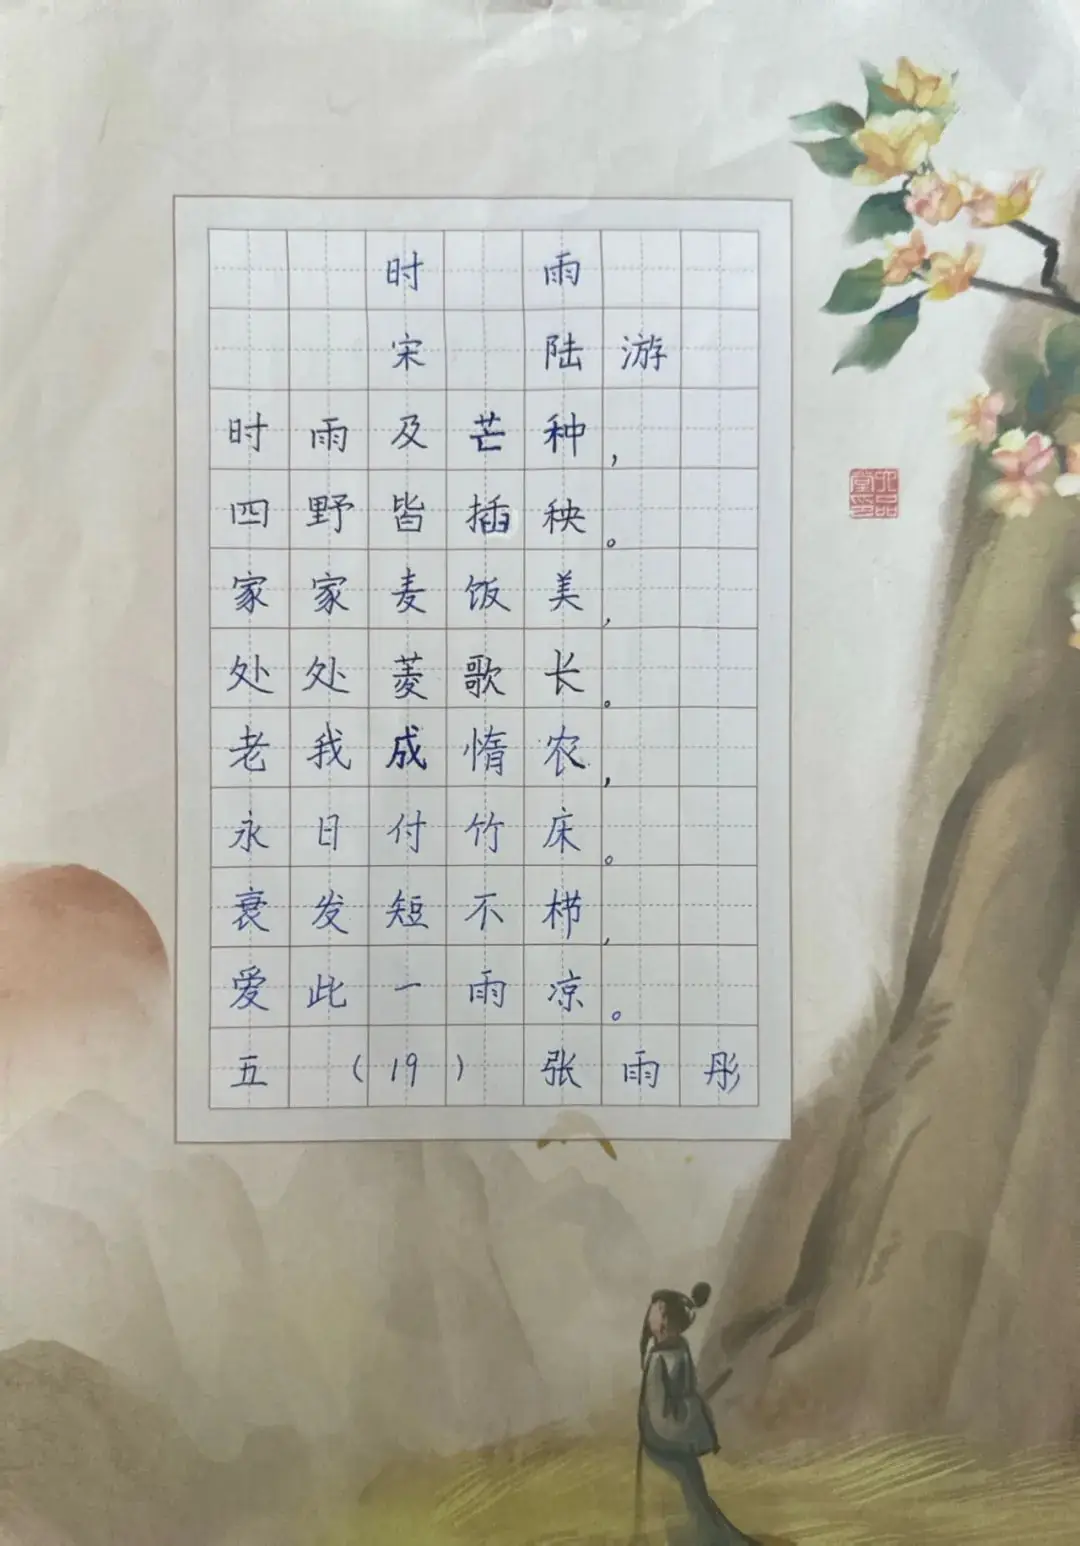 时 雨
宋 陆游
时雨及芒种，
四野皆插秧。
家家麦饭美，
处处菱歌长。
老我成惰农，
永日付竹床。
衰发短不栉，
爱此一雨凉。
五 （19） 张雨彤